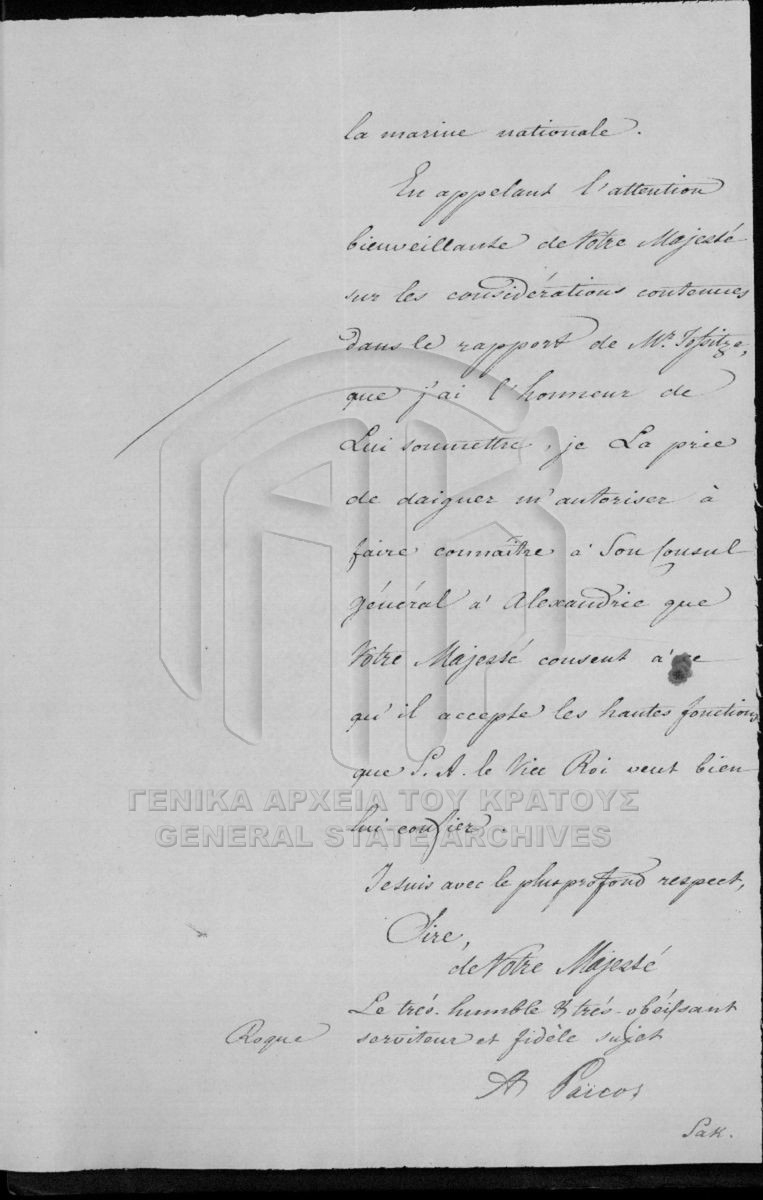 la marine nationale.
En appelant l'attention
bienveillante de Votre Majesté
sur les considérations contenues
dans le rapport de Mr. Tossitze,
que j'ai l'honneur de
Lui soumettre, je La prie
de daigner m'autoriser à
faire connaître à Son Consul
général à Alexandrie que
Votre Majesté consent à ce
qu'il accepte les hautes fonctions
que S. A. le Vice Roi veut bien
ΓΕΝΙΚΑ ΑΡΧΕΙΑ ΤΟΥ ΚΡΑΤΟΥΣ
GENERAL STATE ARCHIVES
lui confier.
Je suis avec le plus profond respect,
Sire,
de Votre Majesté
Le très-humble & très-obéissant
Roque serviteur et fidèle sujet
A Païcos
Sak.